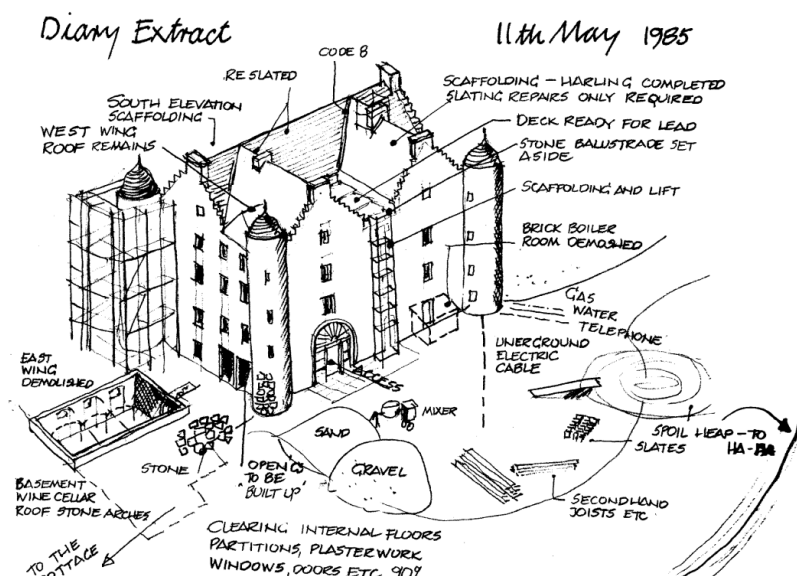 Diary Extract
11th May 1985
CODE 8
RESLATED
SOUTH ELEVATION
SCAFFOLDING
WEST WING
ROOF REMAINS
SCAFFOLDING – HARLING COMPLETED
SLATING REPAIRS ONLY REQUIRED
DECK READY FOR LEAD
STONE BALUSTRADE SET
ASIDE
SCAFFOLDING AND LIFT
BRICK BOILER
ROOM DEMOLISHED
GAS
WATER
TELEPHONE
UNERGROUND
ELECTRIC
CABLE
EAST
WING
DEMOLISHED
ACCESS
MIXER
SAND
GRAVEL
STONE
OPENGS
TO BE
"BUILT UP"
SPOIL HEAP – TO
HA-HA
SLATES
SECONDHAND
JOISTS ETC
BASEMENT
WINE CELLAR
ROOF STONE ARCHES
TO THE
COTTAGE
CLEARING INTERNAL FLOORS
PARTITIONS, PLASTERWORK
WINDOWS, DOORS ETC 90%